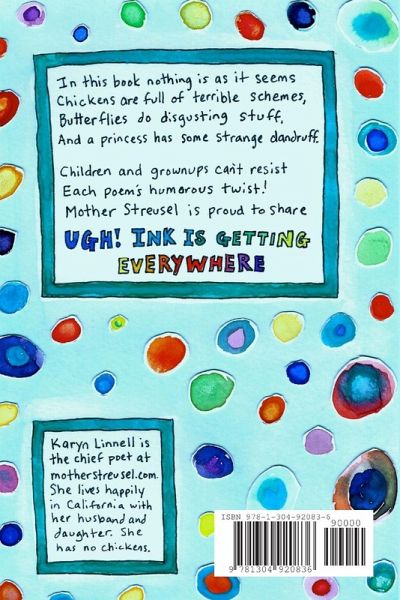 In this book nothing is as it seems
Chickens are full of terrible schemes,
Butterflies do disgusting stuff,
And a princess has some strange dandruff.
Children and grownups can't resist
Each poem's humorous twist!
Mother Streusel is proud to share
UGH! INK IS GETTING
EVERYWHERE
Karyn Linnell is
the chief poet at
motherstreusel.com.
She lives happily
in California with
her husband and
daughter. She
has no chickens.
ISBN 978-1-304-92083-6
90000
9 781304 920836